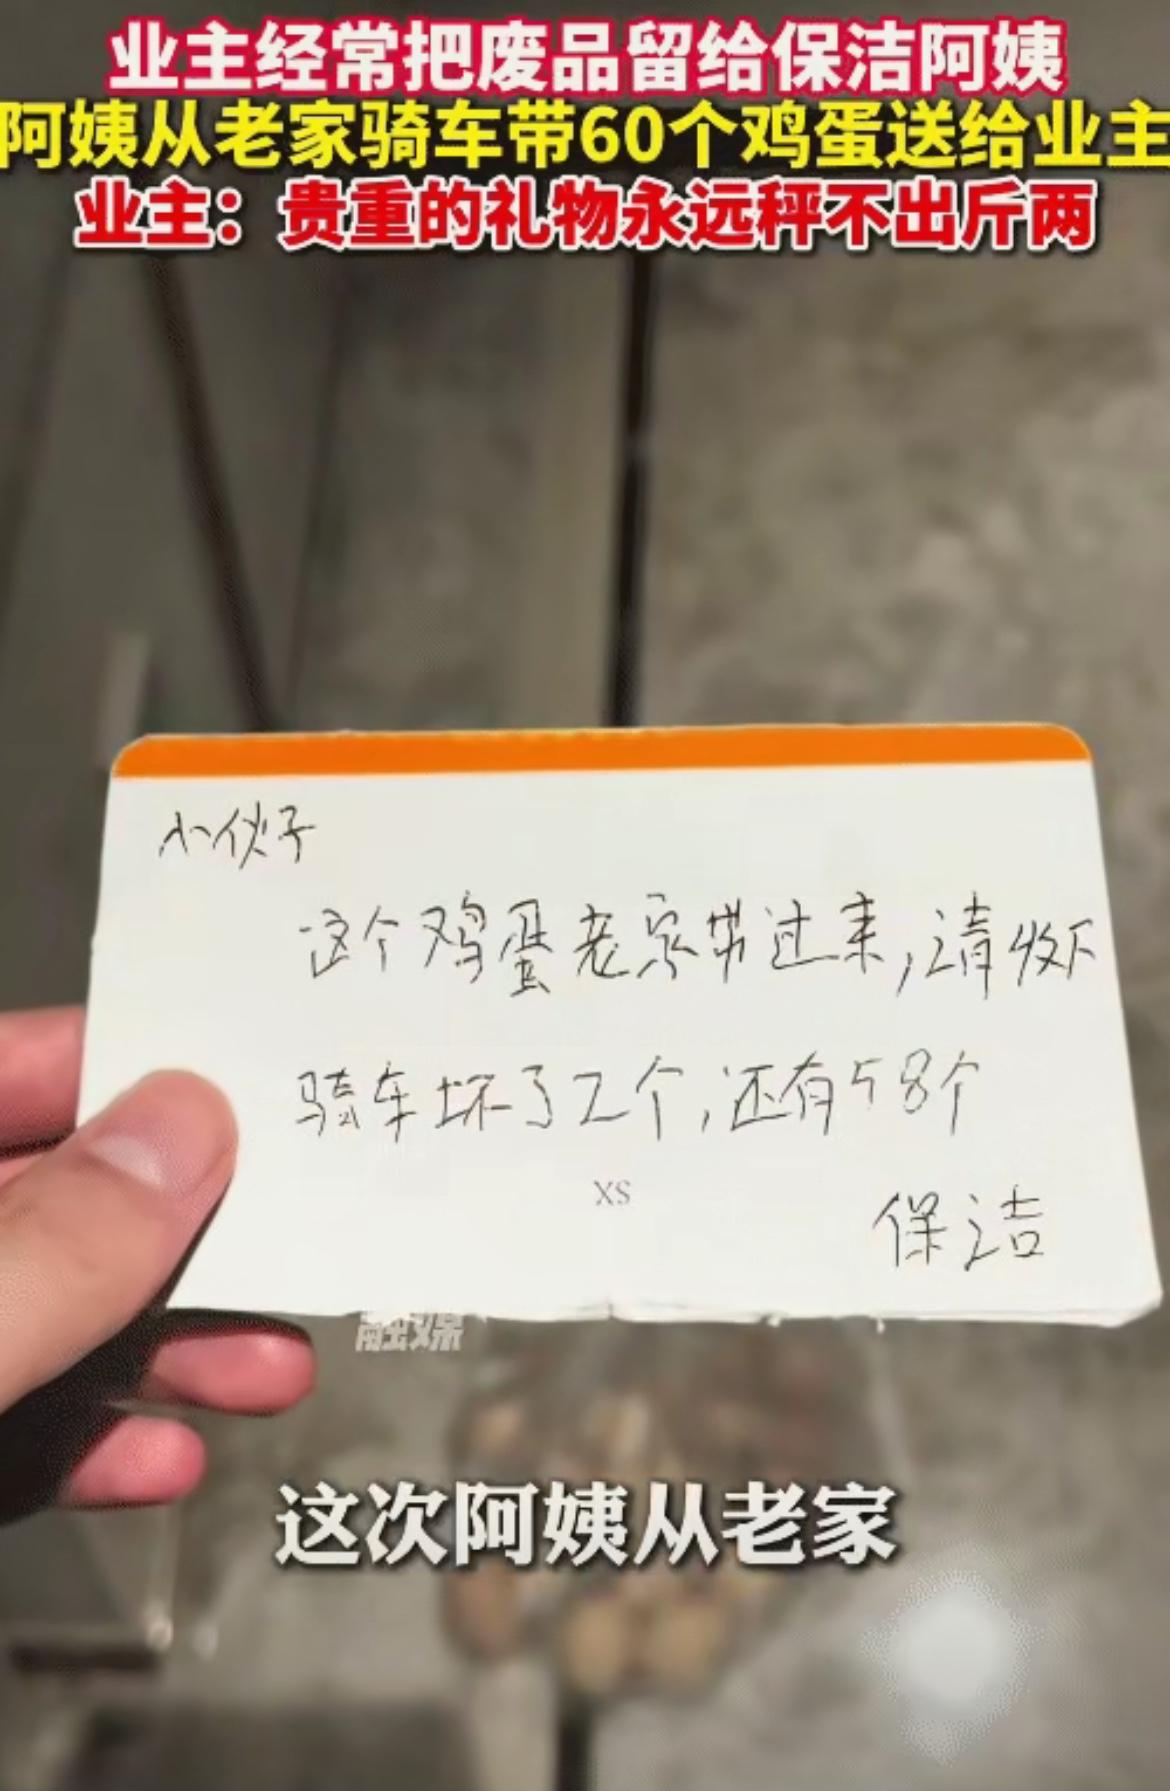 业主经常把废品留给保洁阿姨
阿姨从老家骑车带60个鸡蛋送给业主
业主：贵重的礼物永远秤不出斤两
小伙子
这个鸡蛋老家带过来,请收下
骑车坏了2个,还有58个
XS
保洁
融媒
这次阿姨从老家